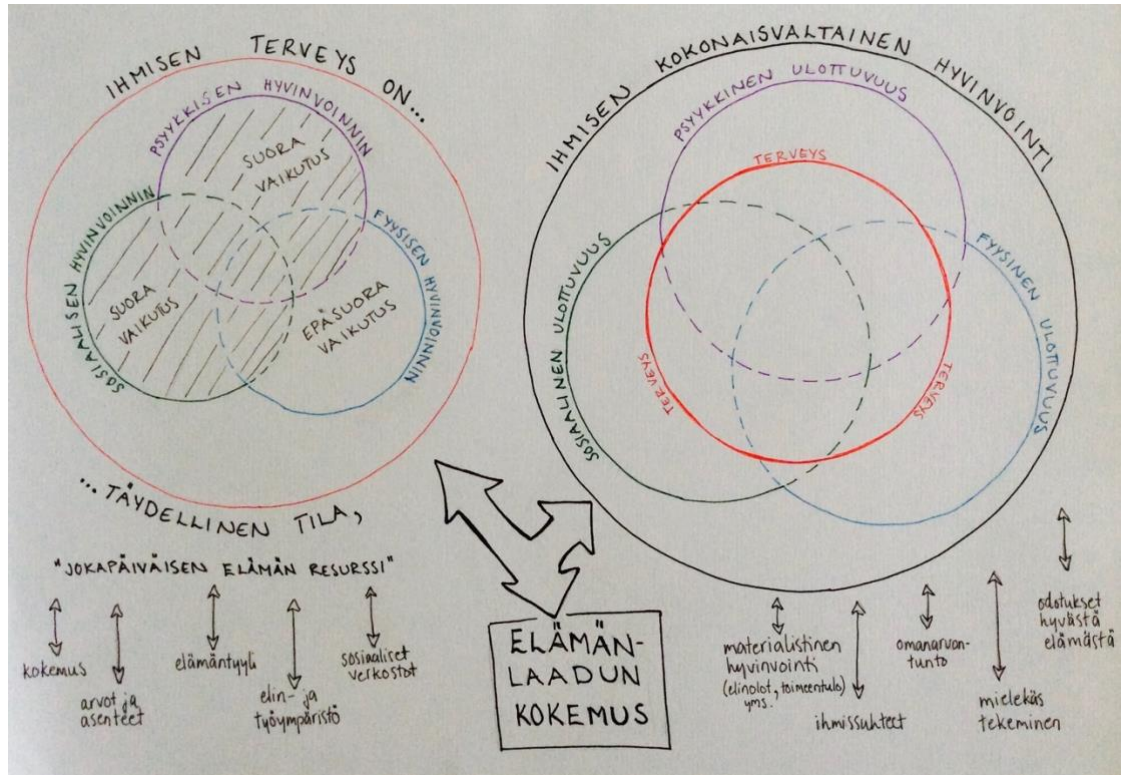 IHMISEN TERVEYS ON...
PSYYKKISEN HYVINVOINNIN
SUORA
VAIKUTUS
SOSIAALISEN HYVINVOINNIN
SUORA
VAIKUTUS
FYYSISEN HYVINVOINNIN
EPÄSUORA
VAIKUTUS
...TÄYDELLINEN TILA,
"JOKAPÄIVÄISEN ELÄMÄN RESURSSI"
kokemus
arvot ja
asenteet
elämäntyyli
elin- ja
työympäristö
sosiaaliset
verkostot
ELÄMÄN-
LAADUN
KOKEMUS
IHMISEN KOKONAISVALTAINEN HYVINVOINTI
PSYYKKINEN ULOTTUVUUS
TERVEYS
SOSIAALINEN ULOTTUVUUS
FYYSINEN ULOTTUVUUS
TERVEYS
TERVEYS
materialistinen
hyvinvointi
(elinolot, toimeentulo)
yms.
ihmissuhteet
omanarvon-
tunto
mielekäs
tekeminen
odotukset
hyvästä
elämästä